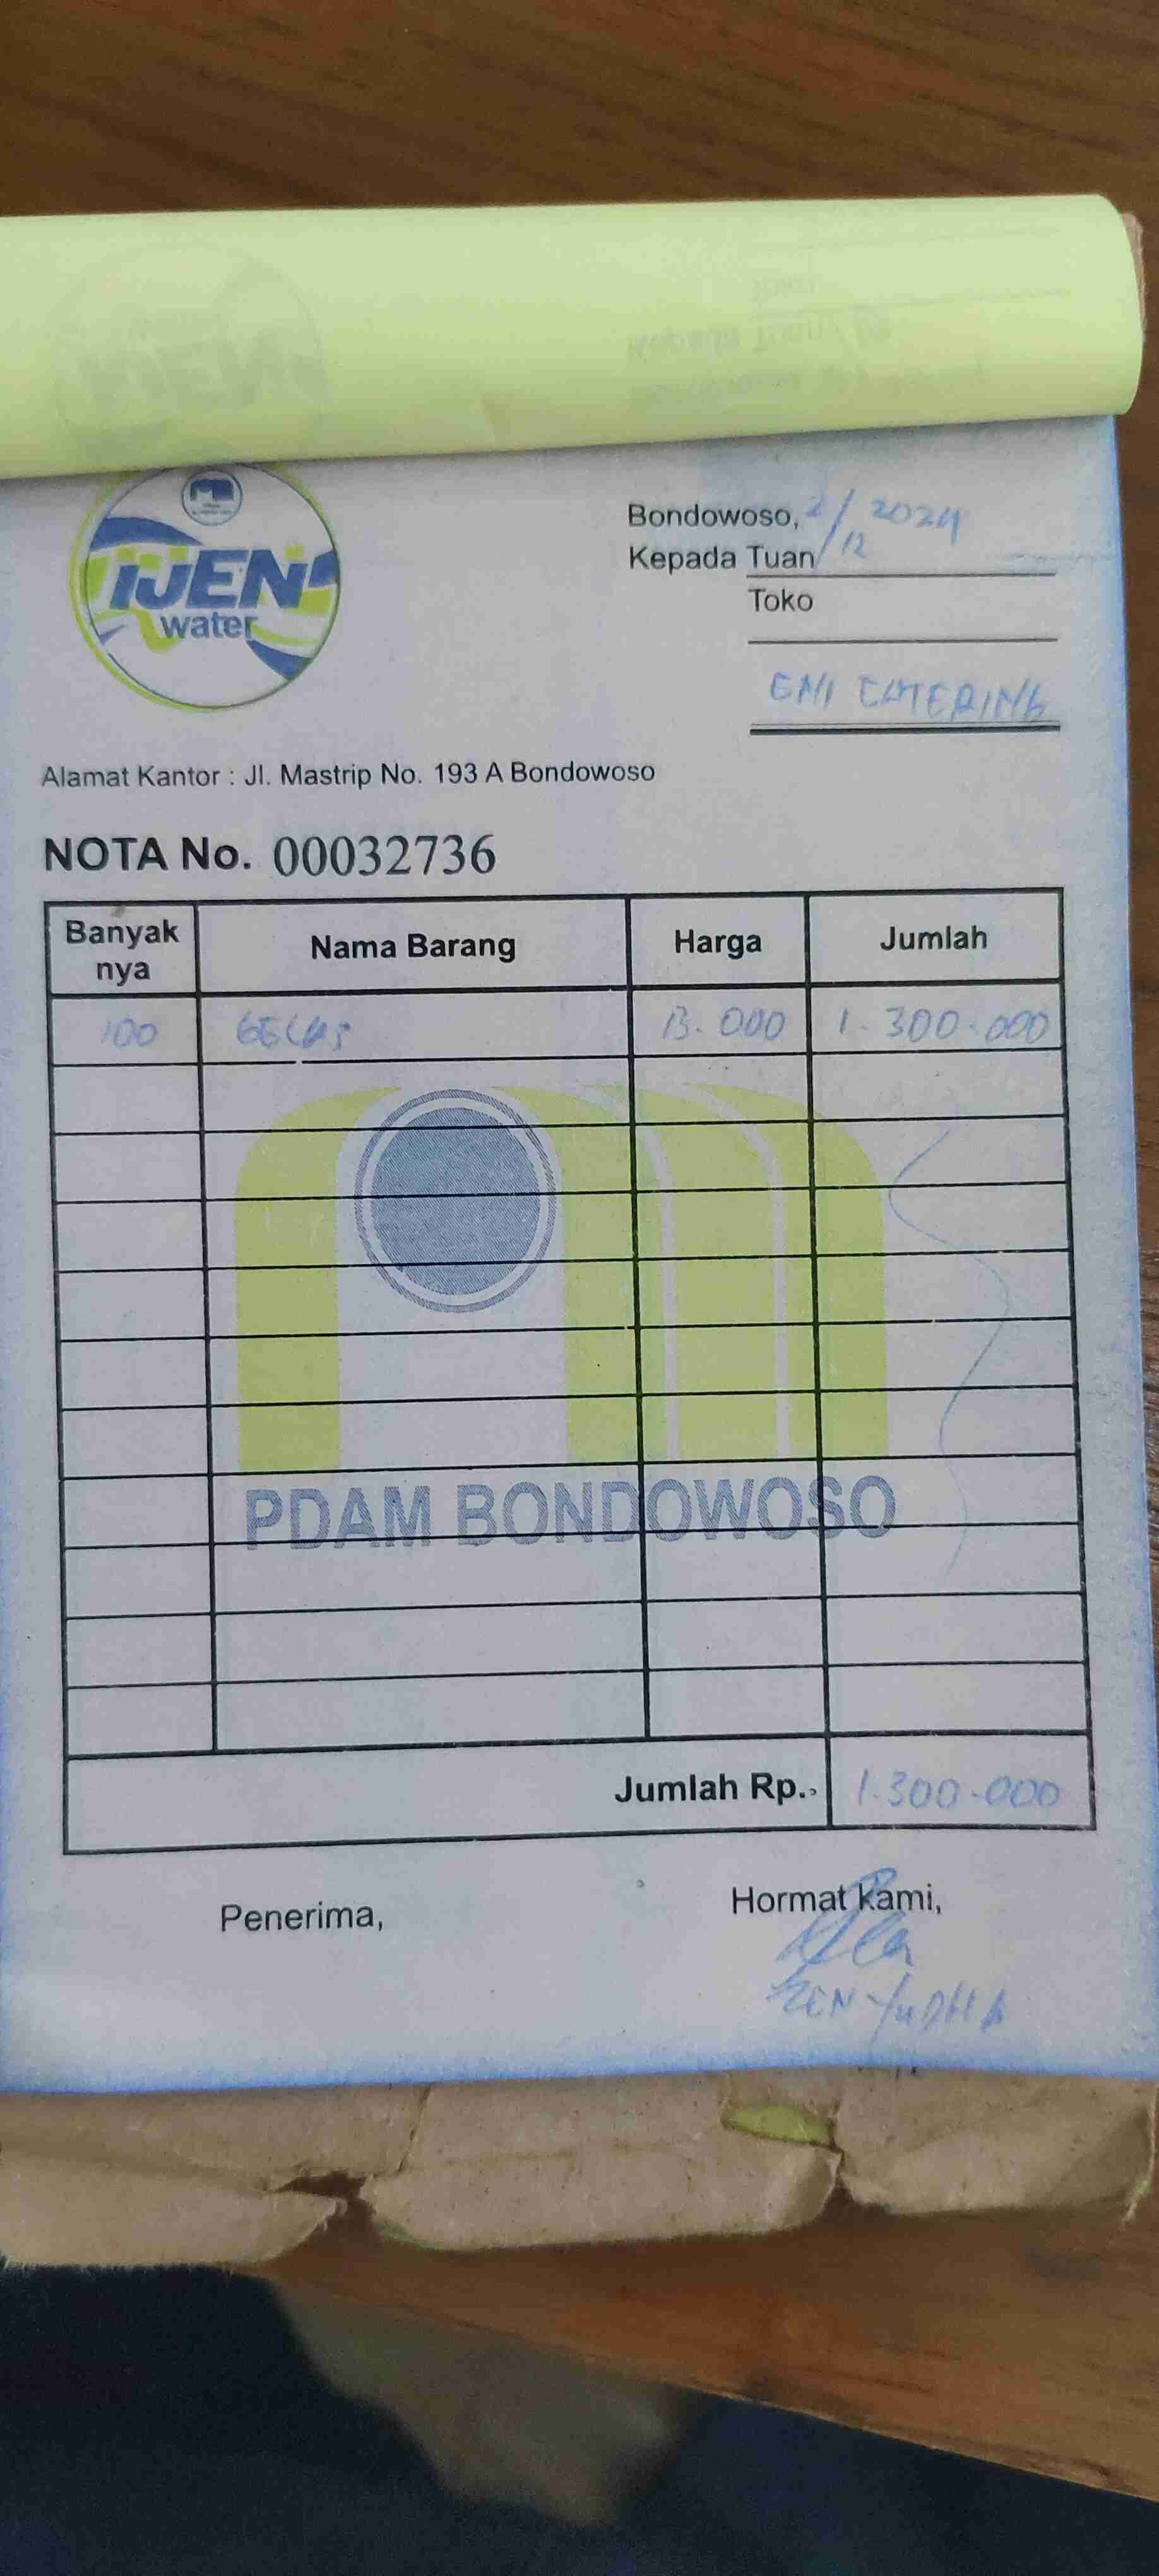 IJEN
water
Bondowoso, 2/12 2024
Kepada Tuan
Toko
ENI CATERING
Alamat Kantor : Jl. Mastrip No. 193 A Bondowoso
NOTA No. 00032736
Banyak nya Nama Barang Harga Jumlah
100 GELAS 13.000 1.300.000
PDAM BONDOWOSO
Jumlah Rp. 1.300.000
Penerima, Hormat Kami,
YUDHA